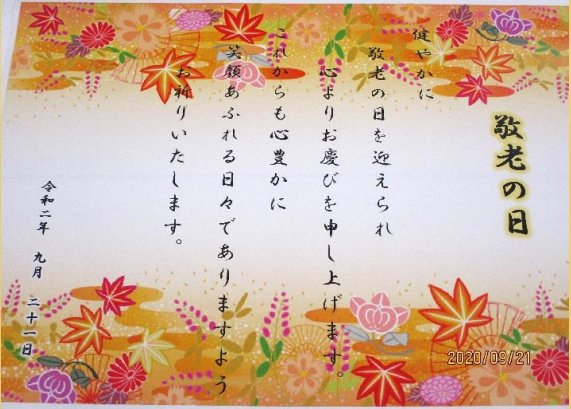 敬老の日
健やかに
敬老の日を迎えられ
心よりお慶びを申し上げます。
これからも心豊かに
笑顔あふれる日々でありますよう
お祈りいたします。
令和二年 九月 二十一日
2020/09/21